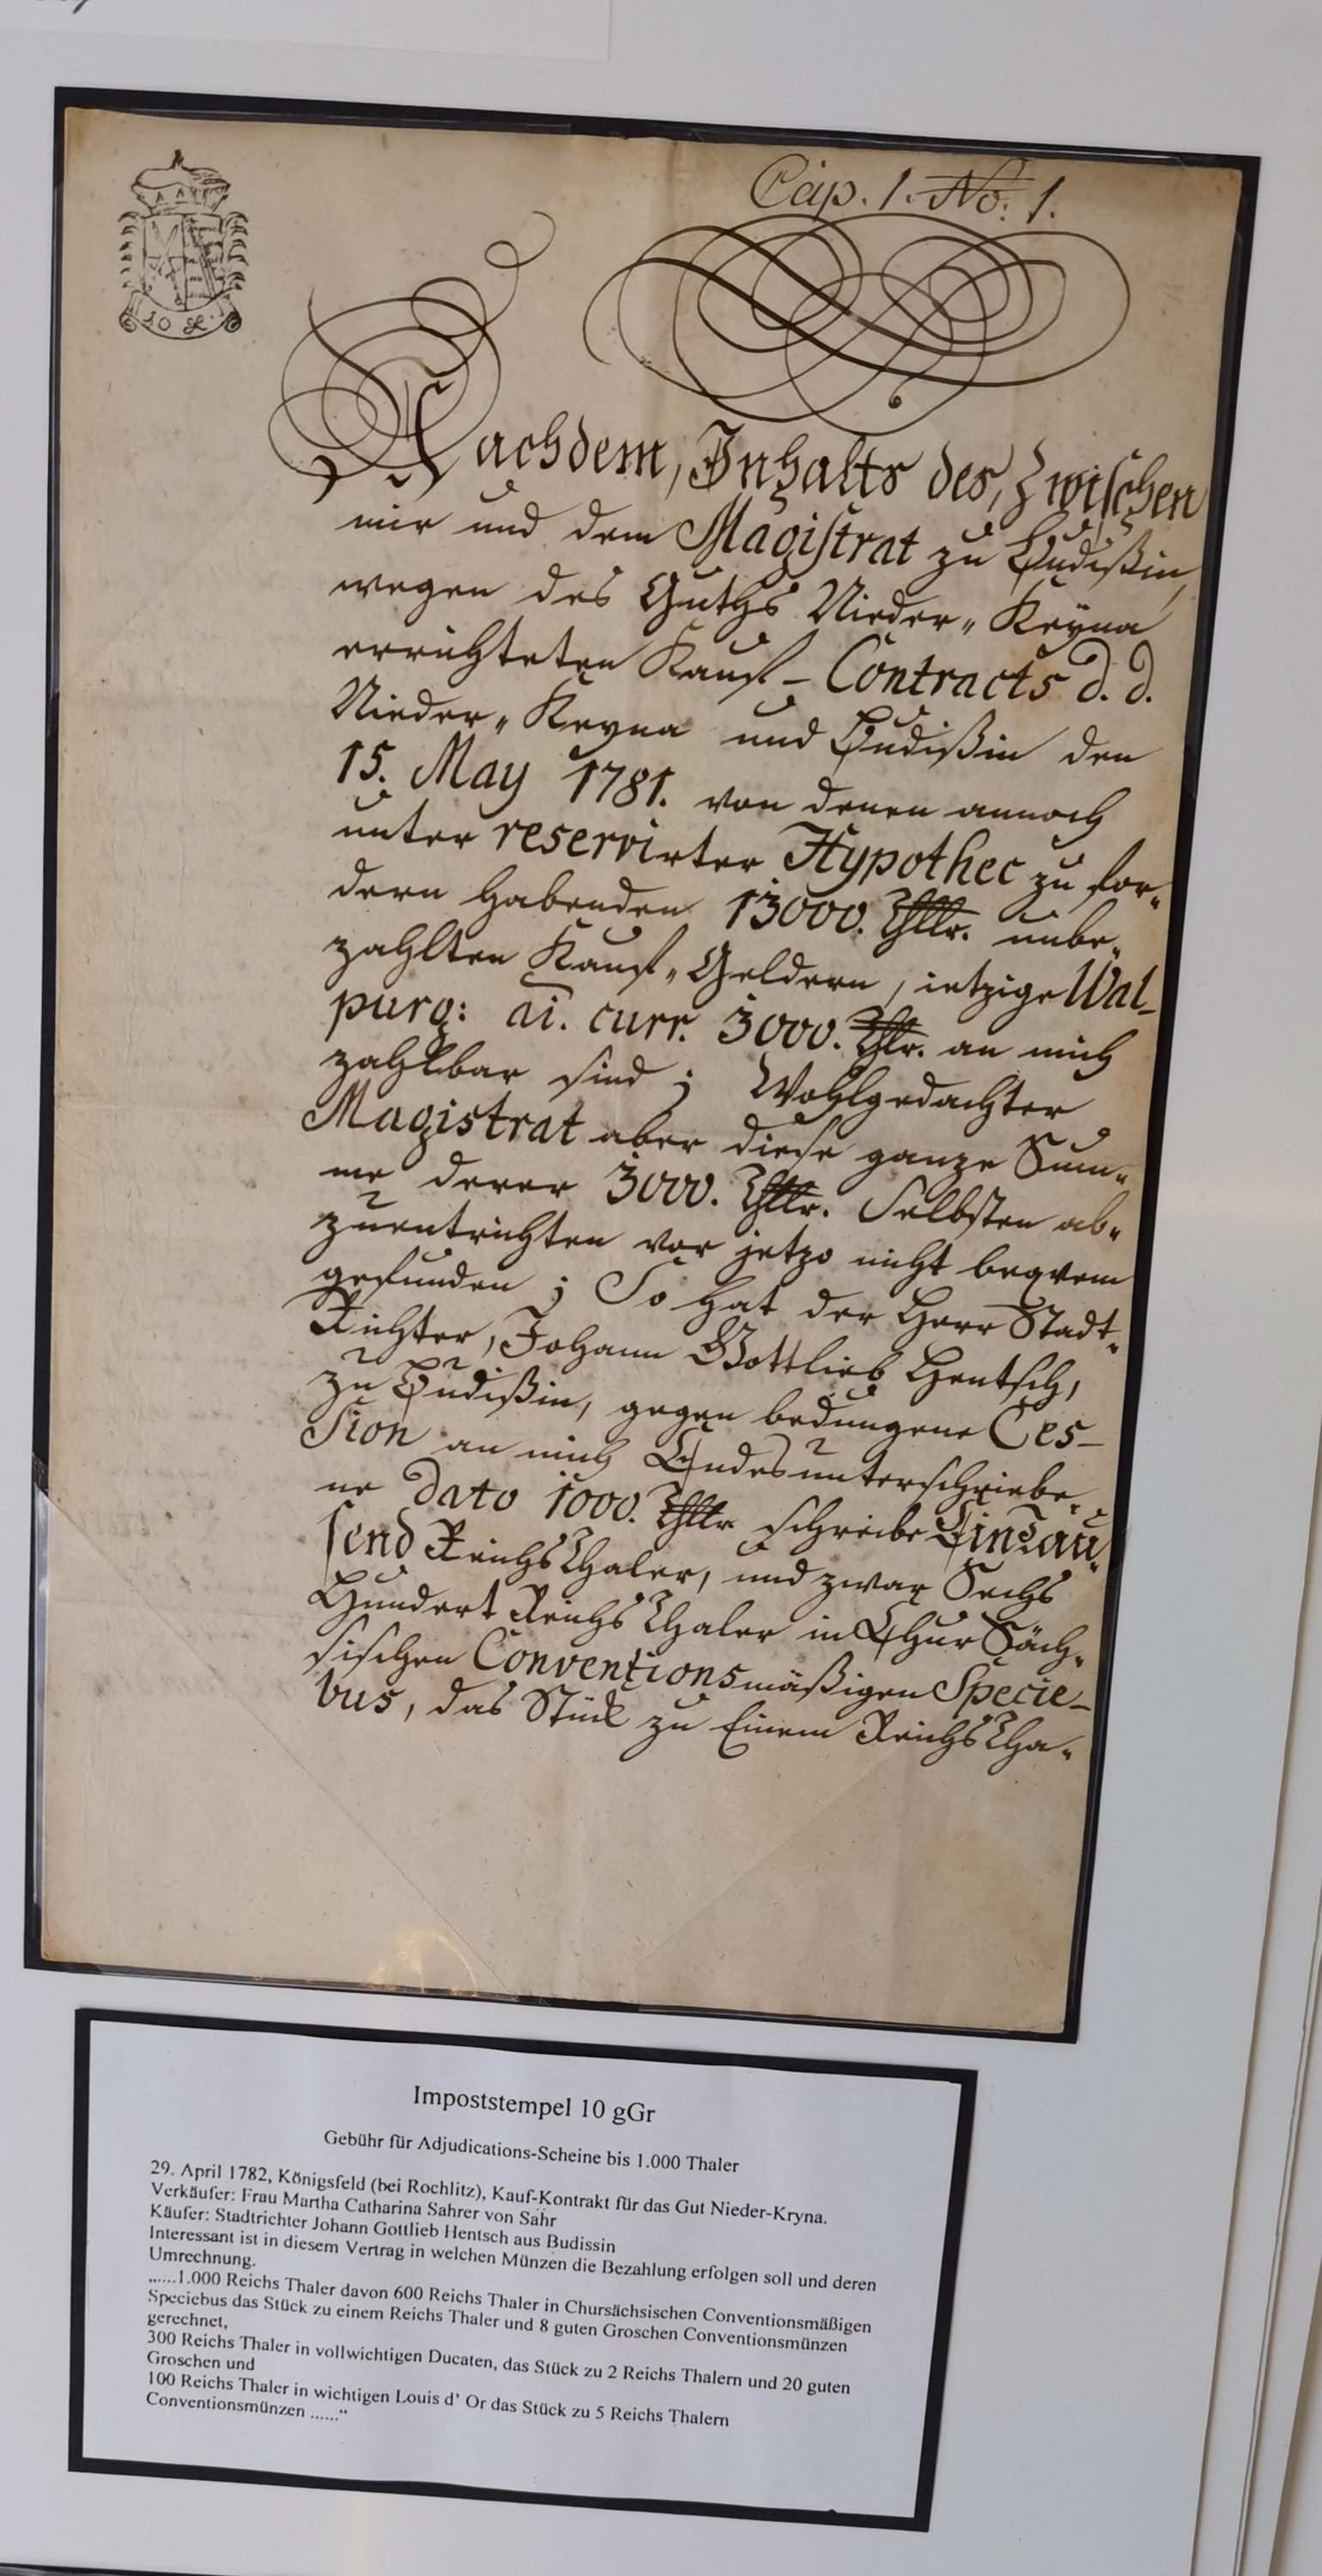 10 g.
Cap. 1. No: 1.
Nachdem, Inhalts des, zwischen
mir und dem Magistrat zu Budißin,
wegen des Guths Nieder„ Keyna
errichteten Kauf- Contracts d. d.
Nieder„ Keyna und Budißin den
15. May 1781. von denen annoch
unter reservirter Hypothec zu for„
dern habenden 13000. Thlr. unbe„
zahlten Kauf„ Geldern, ietzige Wal-
purg: ai. curr. 3000. Thlr. an mich
zahlbar sind; Wohlgedachter
Magistrat aber diese ganze Sum„
me derer 3000. Thlr. Selbsten ab„
zuentrichten vor jetzo nicht beqvem
gefunden; So hat der Herr Stadt„
Richter, Johann Gottlieb Hentsch,
zu Budißin, gegen bedungene Ces-
sion an mich Endesunterschriebe„
ne dato 1000. Thlr schreibe Ein Tau„
send Reichs Thaler, und zwar Sechs
Hundert Reichs Thaler in Chur Säch„
sischen Conventionsmäßigen Specie-
bus, das Stück zu Einem Reichs Tha„
Impoststempel 10 gGr
Gebühr für Adjudications-Scheine bis 1.000 Thaler
29. April 1782, Königsfeld (bei Rochlitz), Kauf-Kontrakt für das Gut Nieder-Kryna.
Verkäufer: Frau Martha Catharina Sahrer von Sahr
Käufer: Stadtrichter Johann Gottlieb Hentsch aus Budissin
Interessant ist in diesem Vertrag in welchen Münzen die Bezahlung erfolgen soll und deren
Umrechnung.
„......1.000 Reichs Thaler davon 600 Reichs Thaler in Chursächsischen Conventionsmäßigen
Speciebus das Stück zu einem Reichs Thaler und 8 guten Groschen Conventionsmünzen
gerechnet,
300 Reichs Thaler in vollwichtigen Ducaten, das Stück zu 2 Reichs Thalern und 20 guten
Groschen und
100 Reichs Thaler in wichtigen Louis d' Or das Stück zu 5 Reichs Thalern
Conventionsmünzen ......“